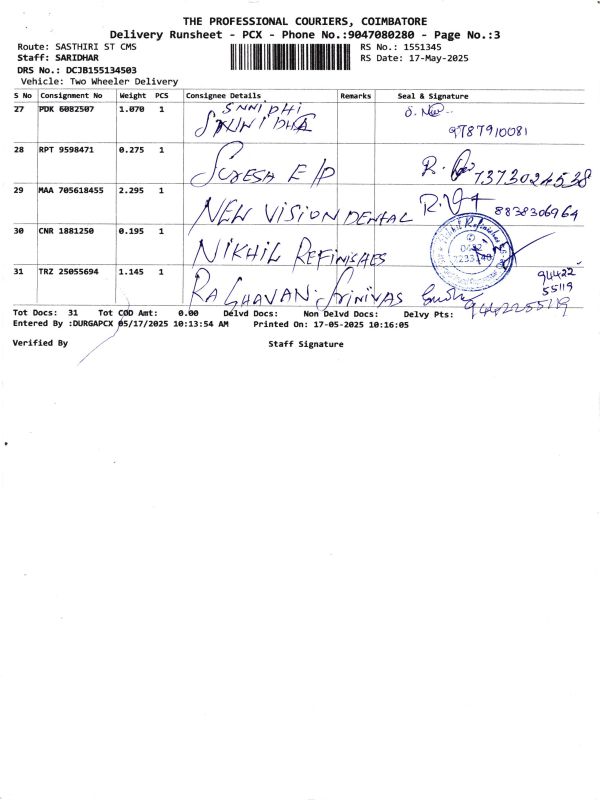 THE PROFESSIONAL COURIERS, COIMBATORE
Delivery Runsheet - PCX - Phone No.:9047080280 - Page No.:3
Route: SASTHIRI ST CMS RS No.: 1551345
Staff: SARIDHAR RS Date: 17-May-2025
DRS No.: DCJB155134503
Vehicle: Two Wheeler Delivery
S No Consignment No Weight PCS Consignee Details Remarks Seal & Signature
27 PDK 6082507 1.070 1 SNNIDHI
9787910081
28 RPT 9598471 0.275 1 SURESH E/P R. 7373024538
29 MAA 705618455 2.295 1 NEW VISION DENTAL 8838306964
30 CNR 1881250 0.195 1 NIKHIL REFINISHES
31 TRZ 25055694 1.145 1 RAGHAVAN. SRINIVAS 94422
55119
9442255119
Tot Docs: 31 Tot COD Amt: 0.00 Delvd Docs: Non Delvd Docs: Delvy Pts:
Entered By :DURGAPCX 05/17/2025 10:13:54 AM Printed On: 17-05-2025 10:16:05
Verified By Staff Signature